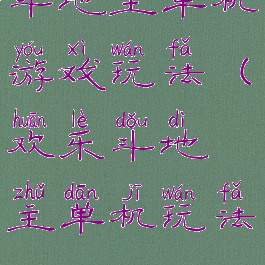 斗地主单机
yóu xì wán fǎ
游戏玩法（
huān lè dǒu dì
欢乐斗地
zhǔ dān jī wán fǎ
主单机玩法